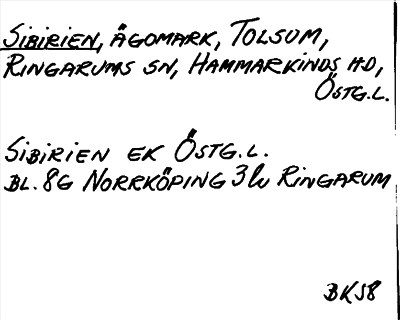 SIBIRIEN, ÄGOMARK, TOLSUM,
RINGARUMS SN, HAMMARKINDS HD,
ÖSTG.L.
SIBIRIEN EK ÖSTG.L.
BL. 8G NORRKÖPING 3 RINGARUM
BK58